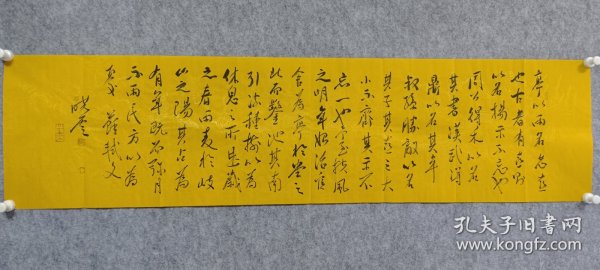 亭以雨名志喜
也古者有喜則
以名物示不忘也
周公得禾以名
其書漢武得
鼎以名其年
叔孫勝敵以名
其子其喜之大
小不齊其示不
忘一也予至扶風
之明年始治官
舍為亭於堂之
北而鑿池其南
引流種樹以為
休息之所是歲
之春雨麥於岐
山之陽其占為
有年既而彌月
不雨民方以為
憂 蘇軾文
孔夫子旧书网
www.kongfz.com